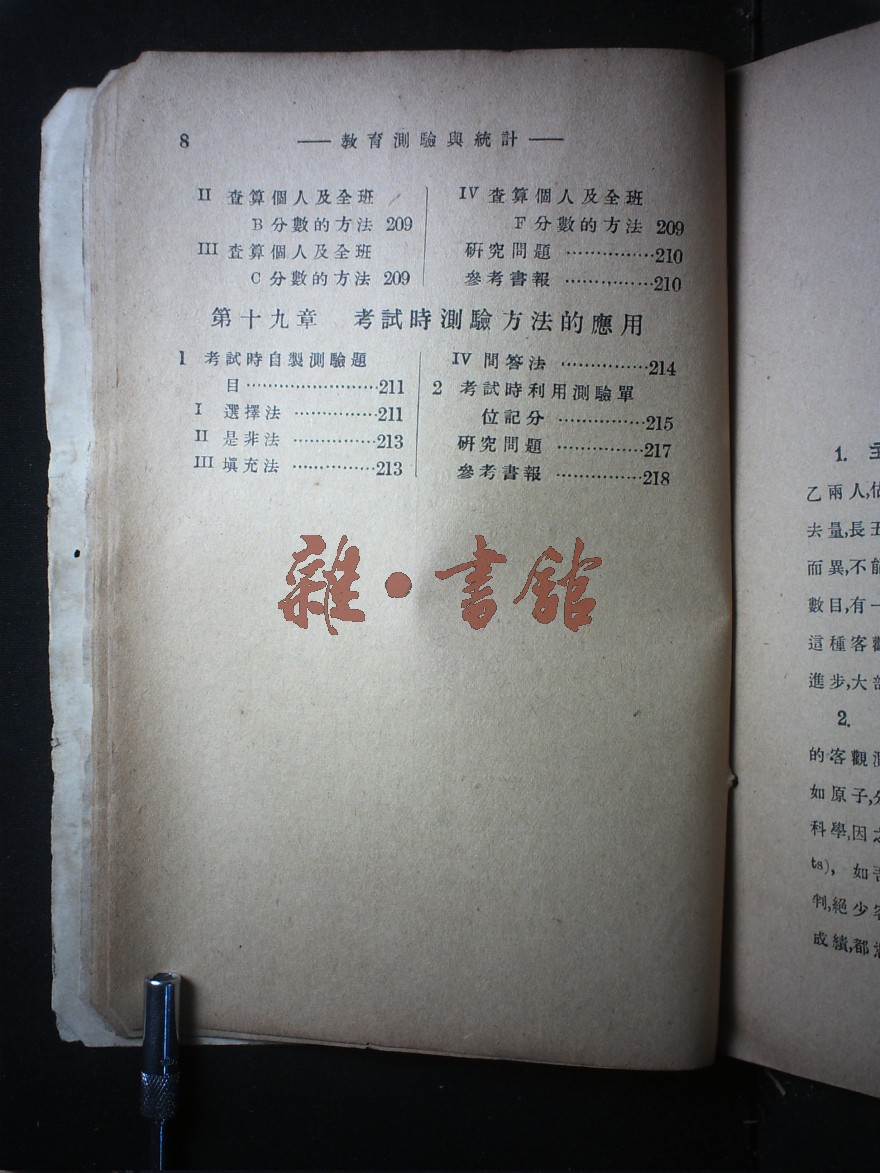 8
教育測驗與統計
II 查算個人及全班
B 分數的方法 209
III 查算個人及全班
C 分數的方法 209
IV 查算個人及全班
F 分數的方法 209
研究問題 ……………210
參考書報 ……………210
第十九章 考試時測驗方法的應用
1 考試時自製測驗題
目……………………211
I 選擇法 ……………211
II 是非法 ……………213
III 填充法 ……………213
IV 問答法 ……………214
2 考試時利用測驗單
位記分 ……………215
研究問題 ……………217
參考書報 ……………218
雜·書館
1.
乙兩人,估
去量,長五
而異,不能
數目,有一
這種客觀
進步,大部
2.
的客觀測
如原子,分
科學,因之
ts), 如
判,絕少客
成績,都